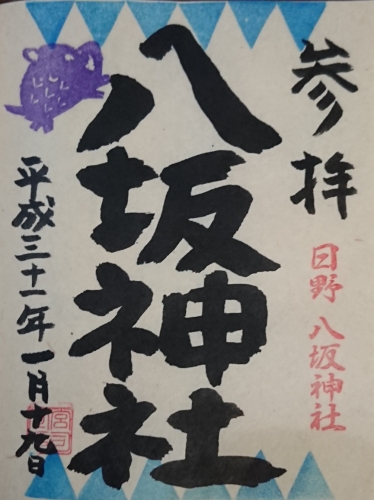 参拝
日野 八坂神社
八坂神社
平成三十一年一月十九日